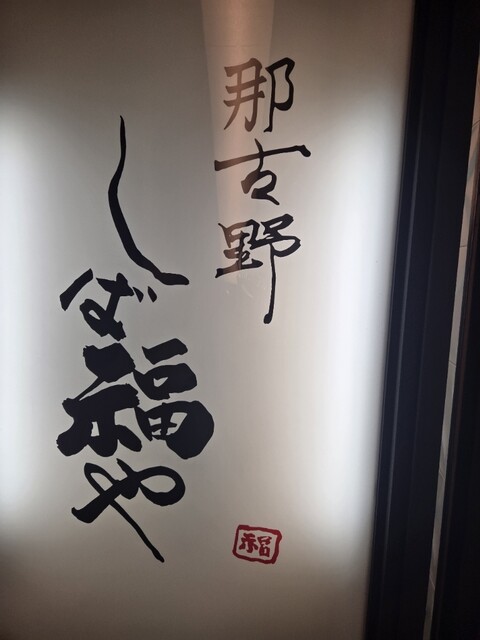 那古野
しば福や
福